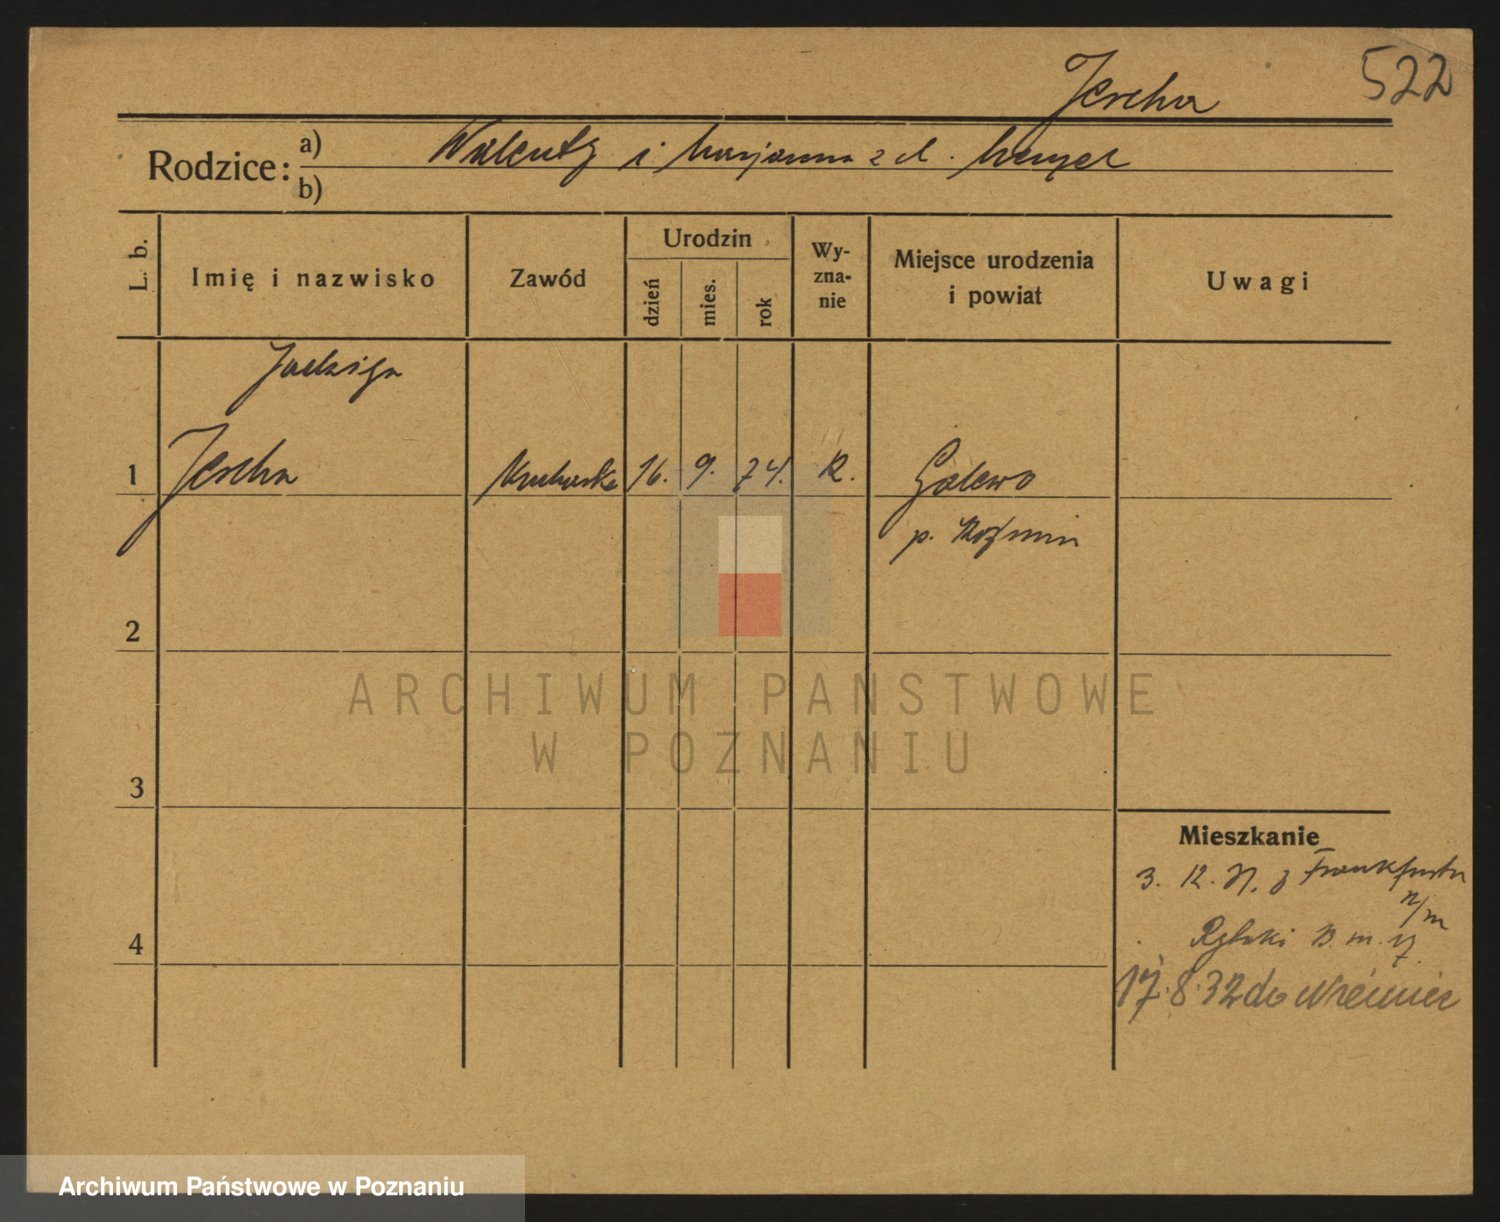 522
Jescha
Rodzice:
a) Walenty i Marjanna z d.
b)
L. b.
Imię i nazwisko
Zawód
Urodzin
dzień
mies.
rok
Wy-
zna-
nie
Miejsce urodzenia
i powiat
Uwagi
Jadwiga
1 Jescha Kucharka 16. 9. 74. R. Galewo
p. Koźmin
2
3
4
ARCHIWUM PAŃSTWOWE
W POZNANIU
Mieszkanie
3. 12. z Frankfurtu
n/m
Rybaki 13. m. 17
17.8.32 do
Archiwum Państwowe w Poznaniu